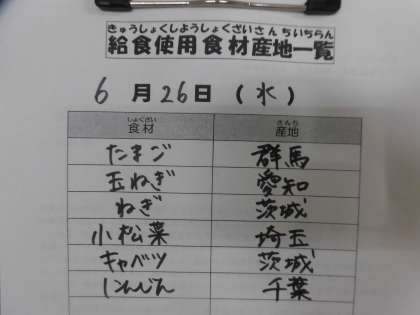 きゅうしょくしようしょくざいさんちいちらん
給食使用食材産地一覧
6月26日(水)
しょくざい さんち
食材 産地
たまご 群馬
玉ねぎ 愛知
ねぎ 茨城
小松菜 埼玉
キャベツ 茨城
にんじん 千葉